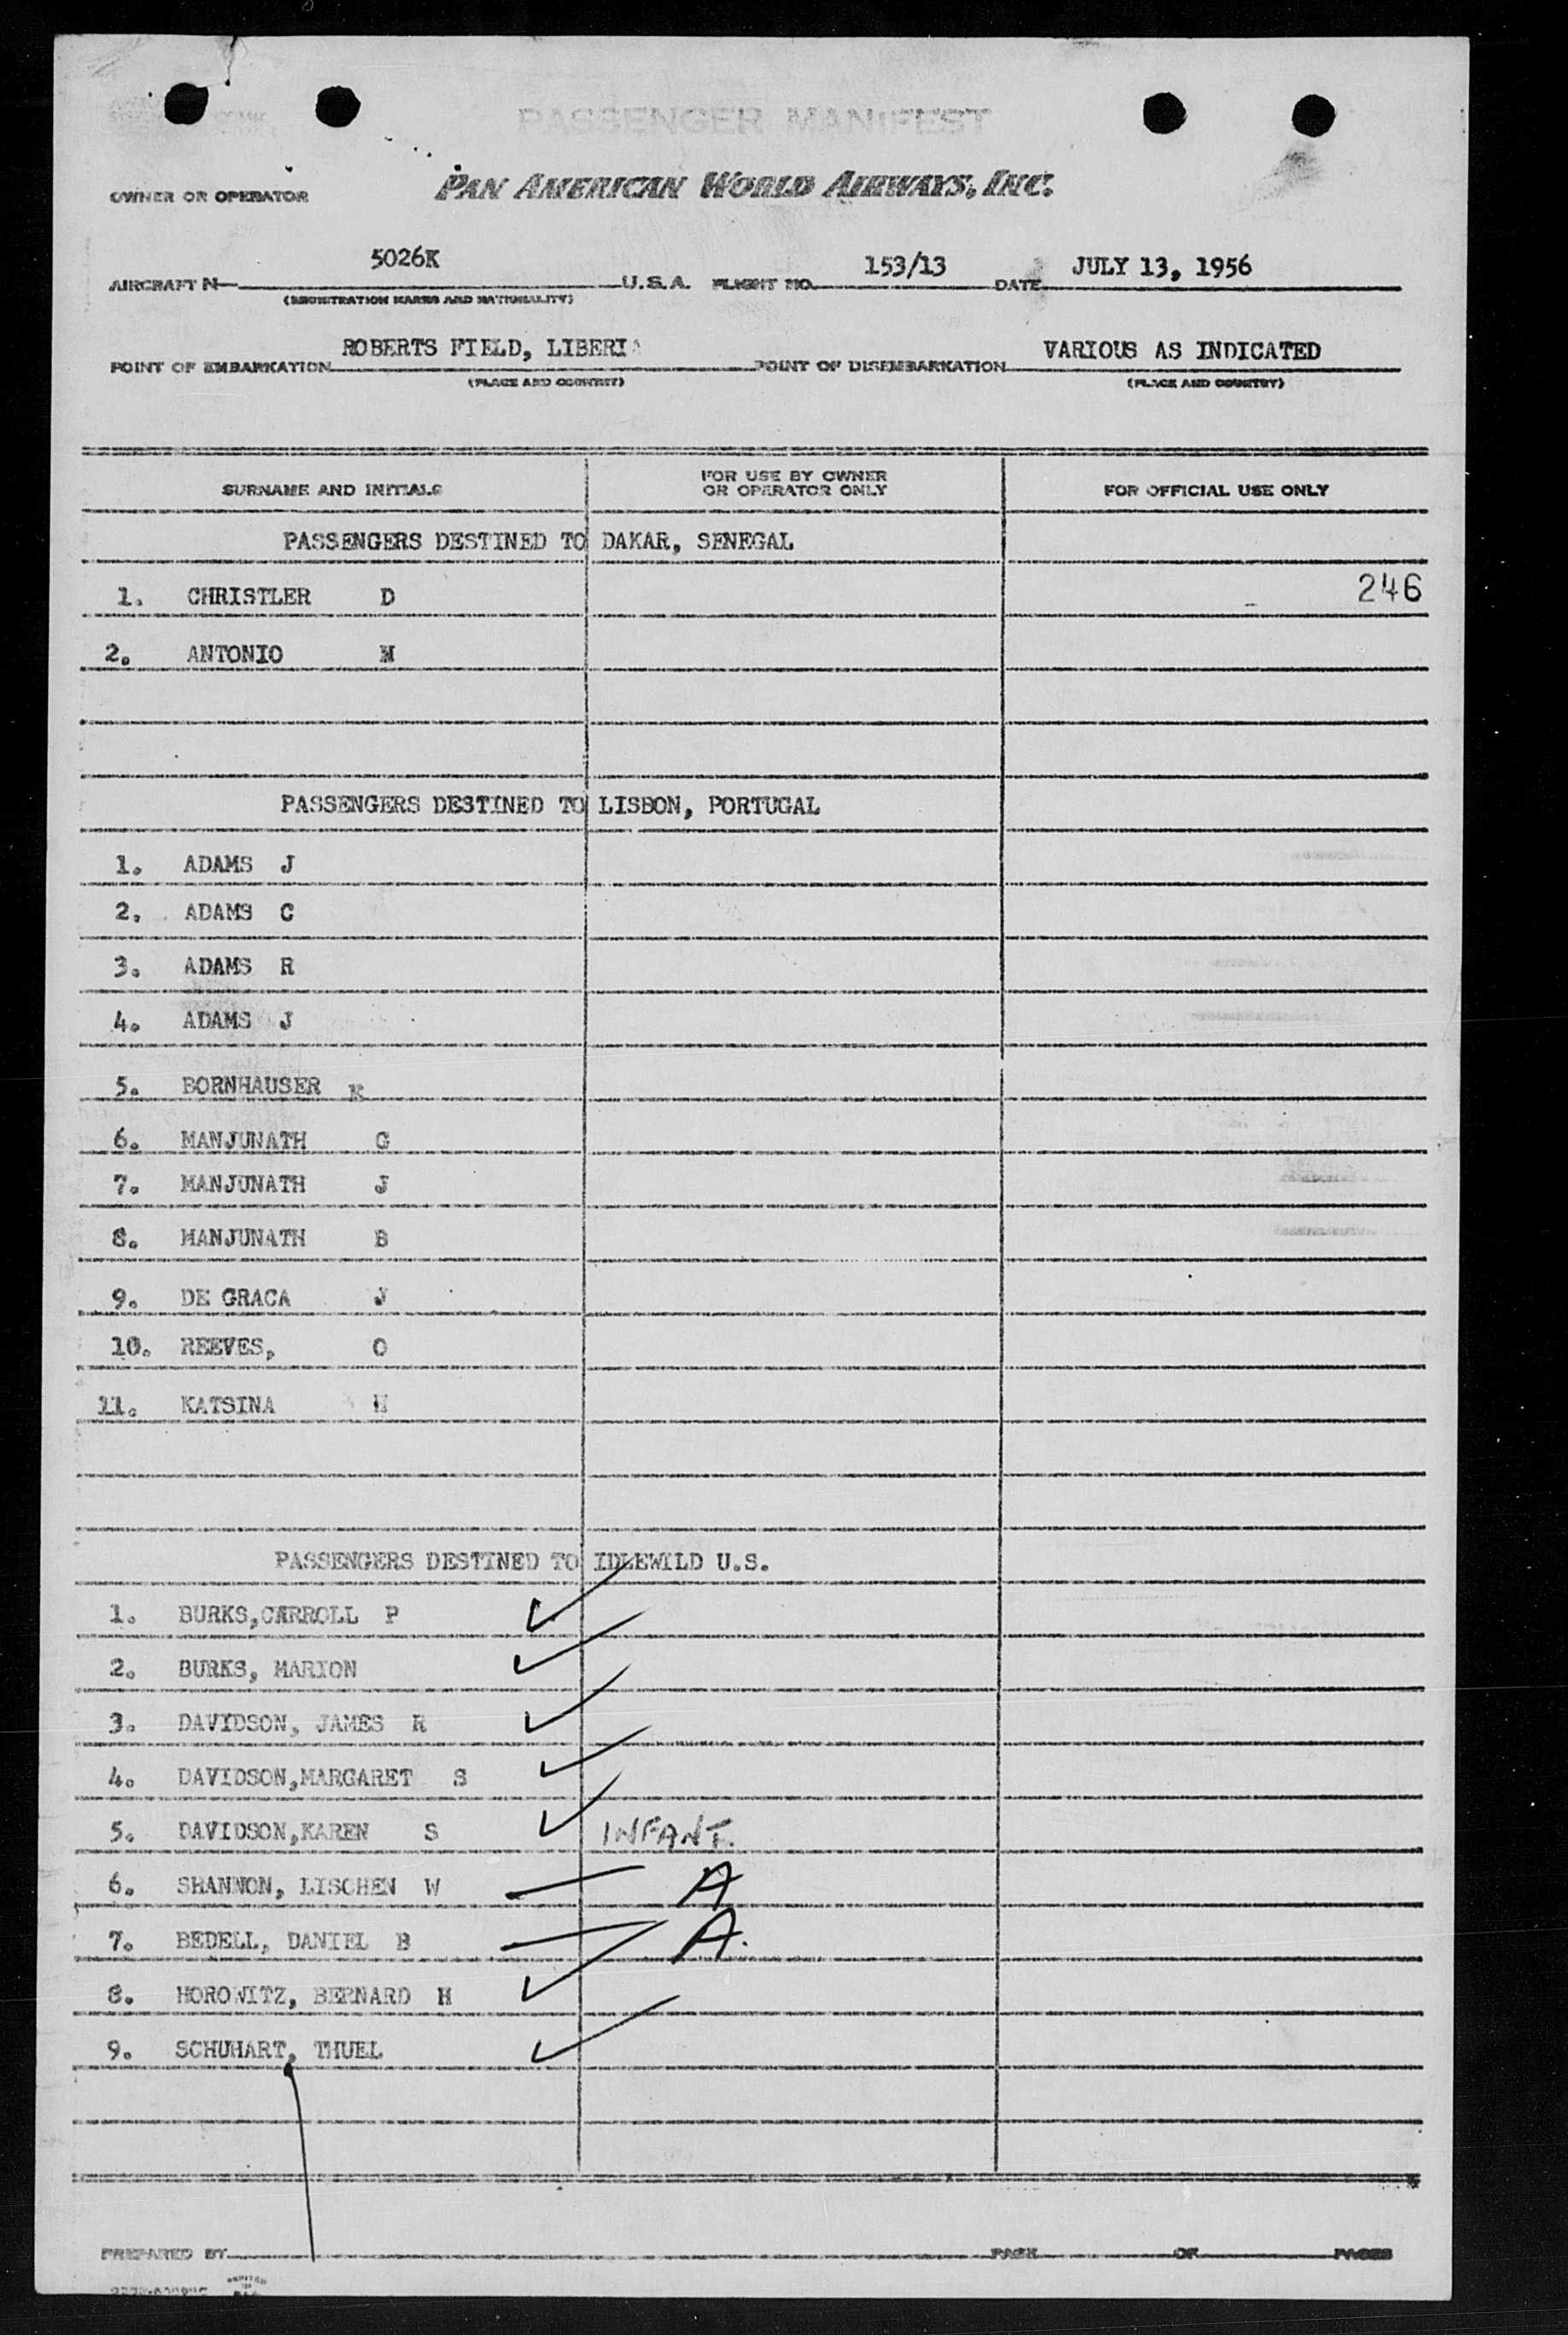 PASSENGER MANIFEST
OWNER OR OPERATOR PAN AMERICAN WORLD AIRWAYS, INC.
AIRCRAFT N 5026K U.S.A. FLIGHT NO. 153/13 DATE JULY 13, 1956
(REGISTRATION MARKS AND NATIONALITY)
POINT OF EMBARKATION ROBERTS FIELD, LIBERIA POINT OF DISEMBARKATION VARIOUS AS INDICATED
(PLACE AND COUNTRY) (PLACE AND COUNTRY)
SURNAME AND INITIALS FOR USE BY OWNER OR OPERATOR ONLY FOR OFFICIAL USE ONLY
PASSENGERS DESTINED TO DAKAR, SENEGAL
1. CHRISTLER D 246
2. ANTONIO M
PASSENGERS DESTINED TO LISBON, PORTUGAL
1. ADAMS J
2. ADAMS C
3. ADAMS R
4. ADAMS J
5. BORNHAUSER K
6. MANJUNATH G
7. MANJUNATH J
8. MANJUNATH B
9. DE GRACA J
10. REEVES, O
11. KATSINA H
PASSENGERS DESTINED TO IDLEWILD U.S.
1. BURKS,CARROLL P ✓
2. BURKS, MARION ✓
3. DAVIDSON, JAMES R ✓
4. DAVIDSON,MARGARET S ✓
5. DAVIDSON,KAREN S ✓ INFANT.
6. SHANNON, LISCHEN W — A
7. BEDELL, DANIEL B — A.
8. HOROWITZ, BERNARD H ✓
9. SCHUHART, THUEL ✓
PREPARED BY PAGE OF PAGES